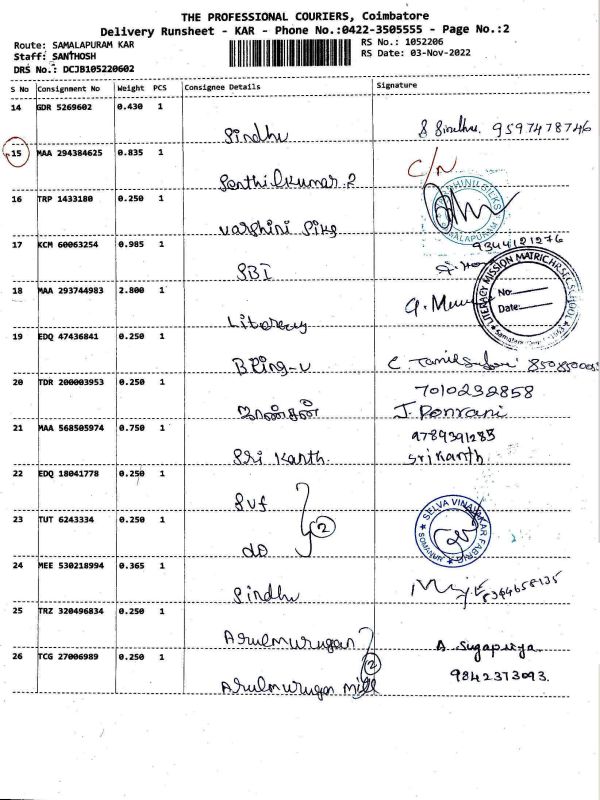 THE PROFESSIONAL COURIERS, Coimbatore
Delivery Runsheet - KAR - Phone No.:0422-3505555 - Page No.:2
Route: SAMALAPURAM KAR
Staff: SANTHOSH
DRS No.: DCJB105220602
RS No.: 1052206
RS Date: 03-Nov-2022
S No Consignment No Weight PCS Consignee Details Signature
14 GDR 5269602 0.430 1
Sindhu S Sindhu. 9597478746
15 MAA 294384625 0.835 1
Senthilkumar.P C/N
16 TRP 1433180 0.250 1
Varshini
SAMALAPURAM
17 KCM 60063254 0.985 1
9344121276
SBI
18 MAA 293744983 2.800 1
LITERACY MISSION MATRIC HR.SEC.SCHOOL
No:
Date:
Literacy
19 EDQ 47436841 0.250 1
20 TDR 200003953 0.250 1
7010232858
J. Ponrani
21 MAA 568505974 0.750 1
9789391283
Sri Kanth. Srikanth
22 EDQ 18041778 0.250 1
SVF
23 TUT 6243334 0.250 1
2
SELVA VINAYAKAR FABRICS
SOMANUR
do
24 MEE 530218994 0.365 1
Sindhu 8344658135
25 TRZ 320496834 0.250 1
Arulmurugan A. Sugapriya.
26 TCG 27006989 0.250 1
2
9842373093.
Arulmurugan Mill